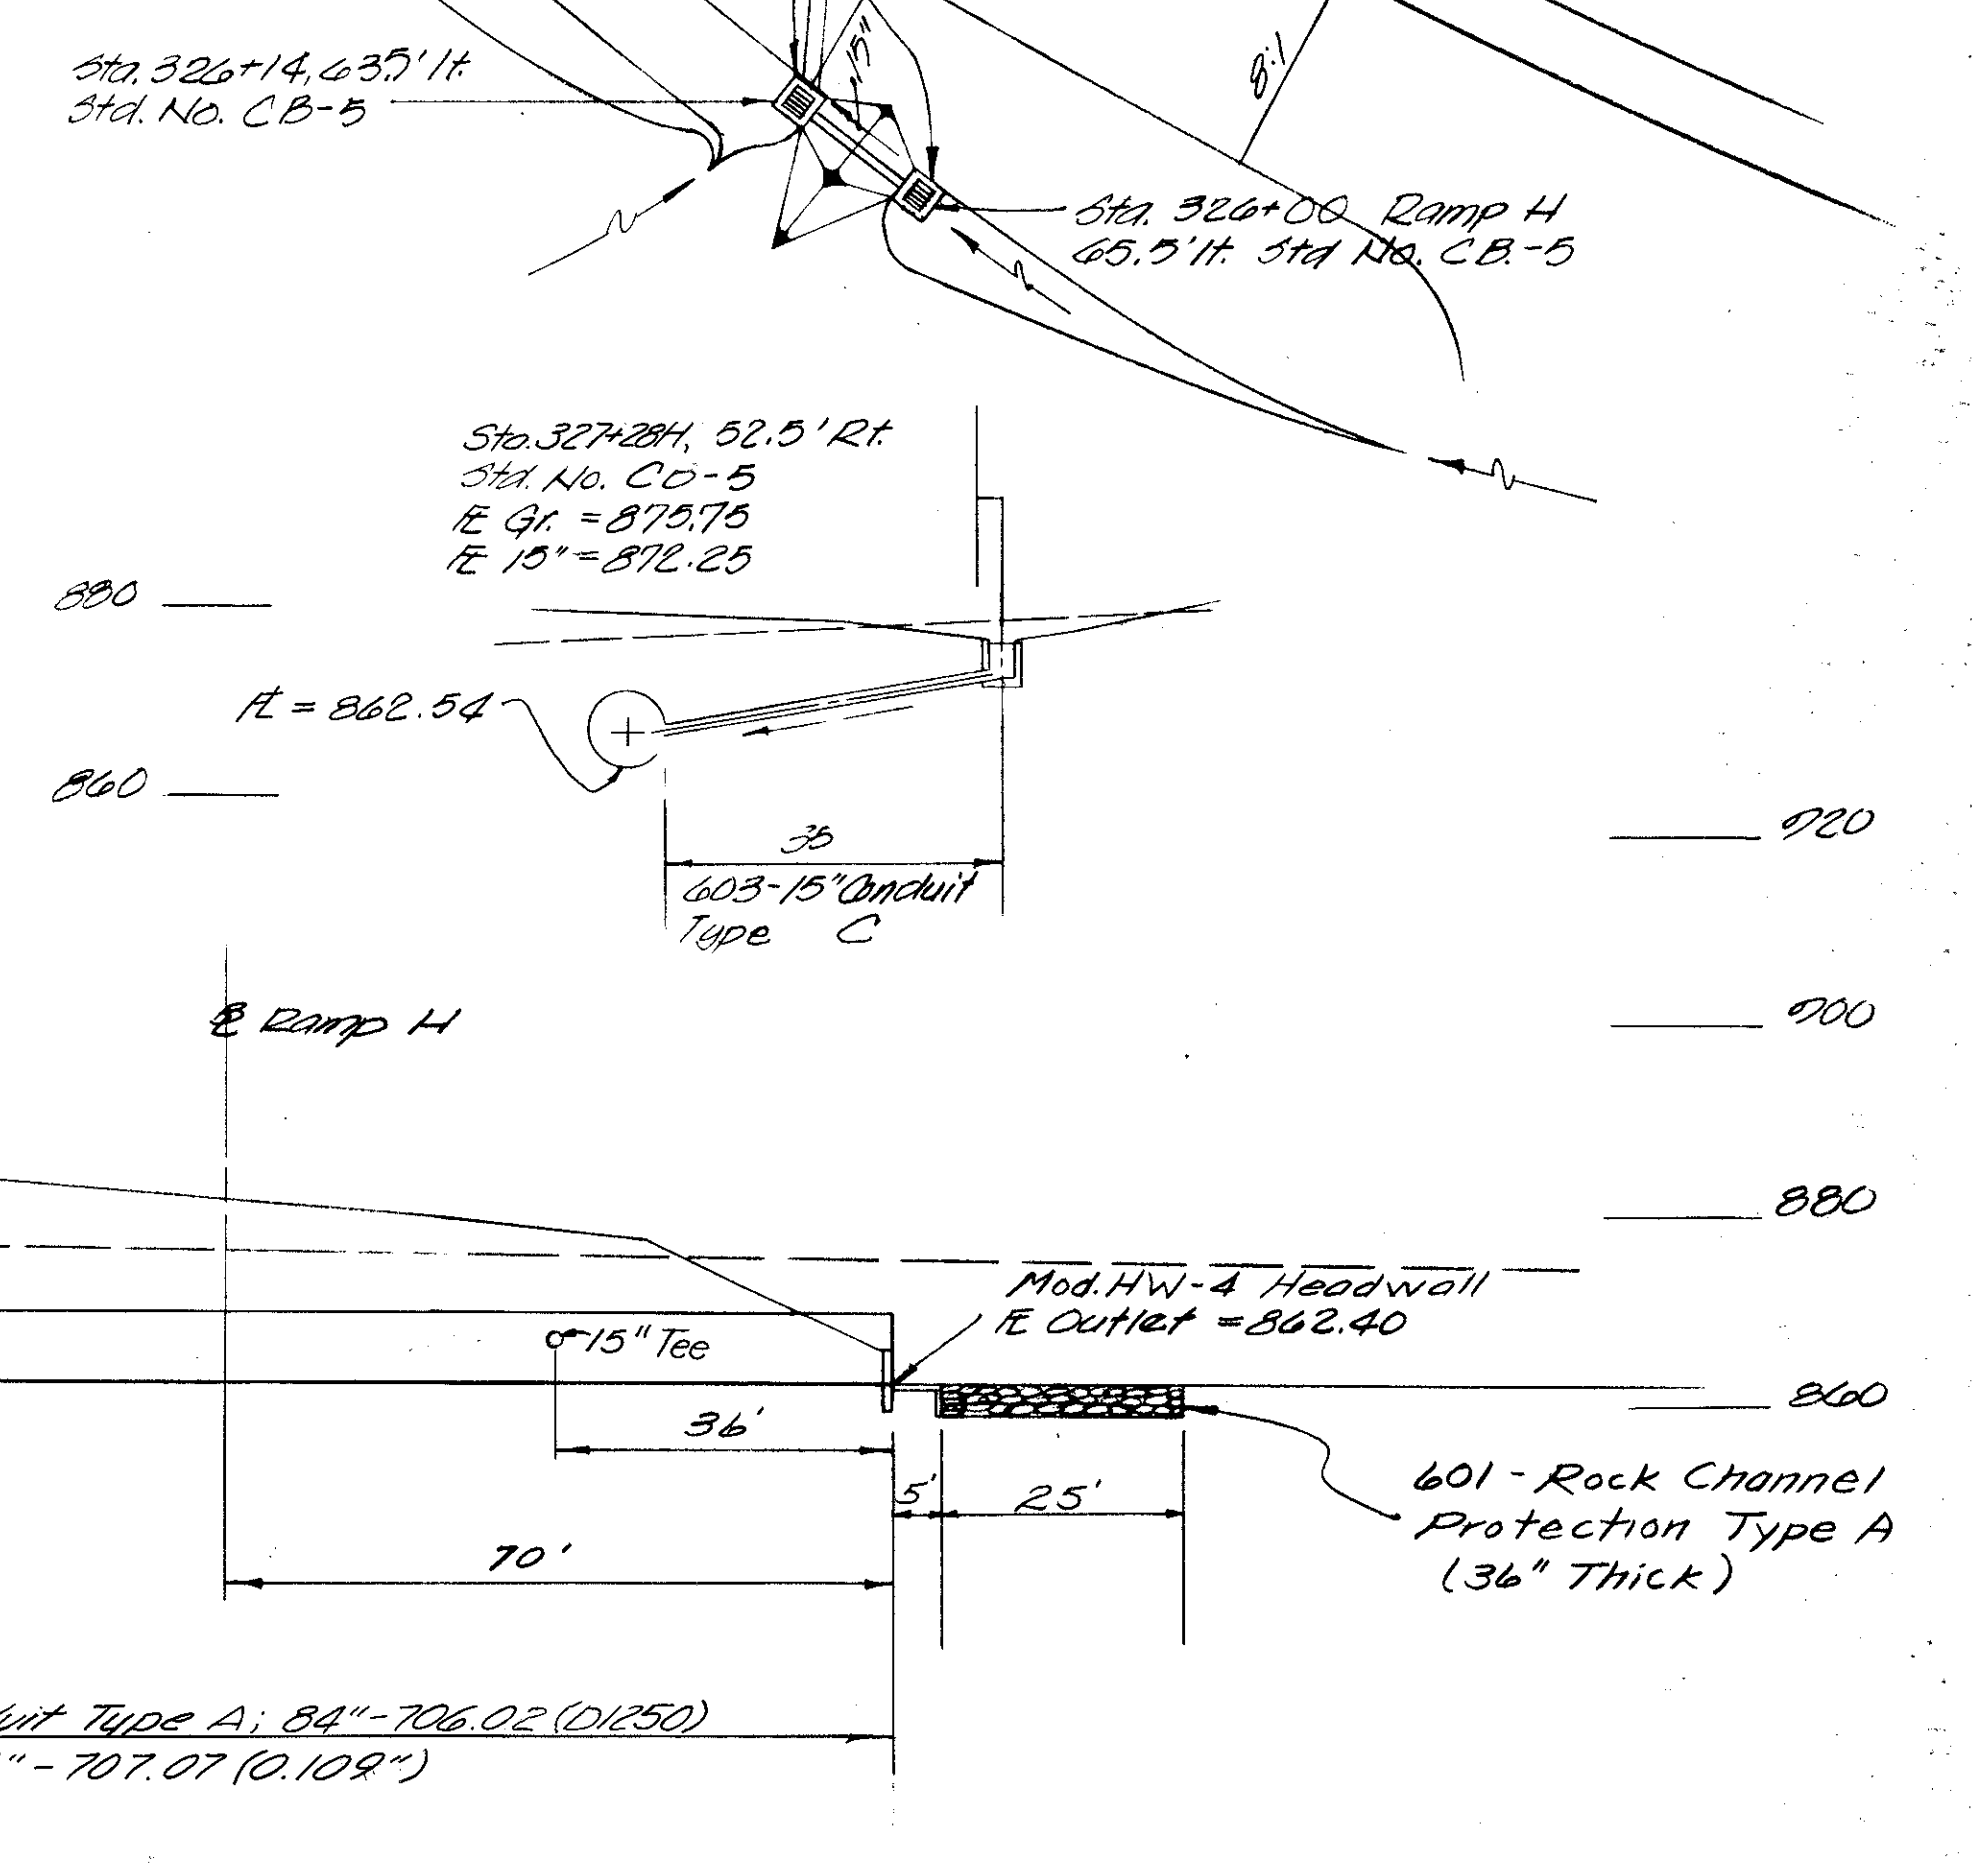 15"
8:1
Sta. 326+14, 63.5' lt.
Std. No. CB-5
Sta. 326+00 Ramp H
65.5' lt. Std No. CB.-5
Sta. 327+28H, 52.5' Rt.
Std. No. CB-5
℄ Gr. = 875.75
℄ 15" = 872.25
880
℄ = 862.54
860
35
603-15" Conduit
Type C
920
900
℄ Ramp H
880
Mod. HW-4 Headwall
℄ Outlet = 862.40
15" Tee
860
36'
5'
25'
601 - Rock Channel
Protection Type A
(36" Thick)
70'
uit Type A; 84"-706.02 (D1250)
"-707.07 (0.109")